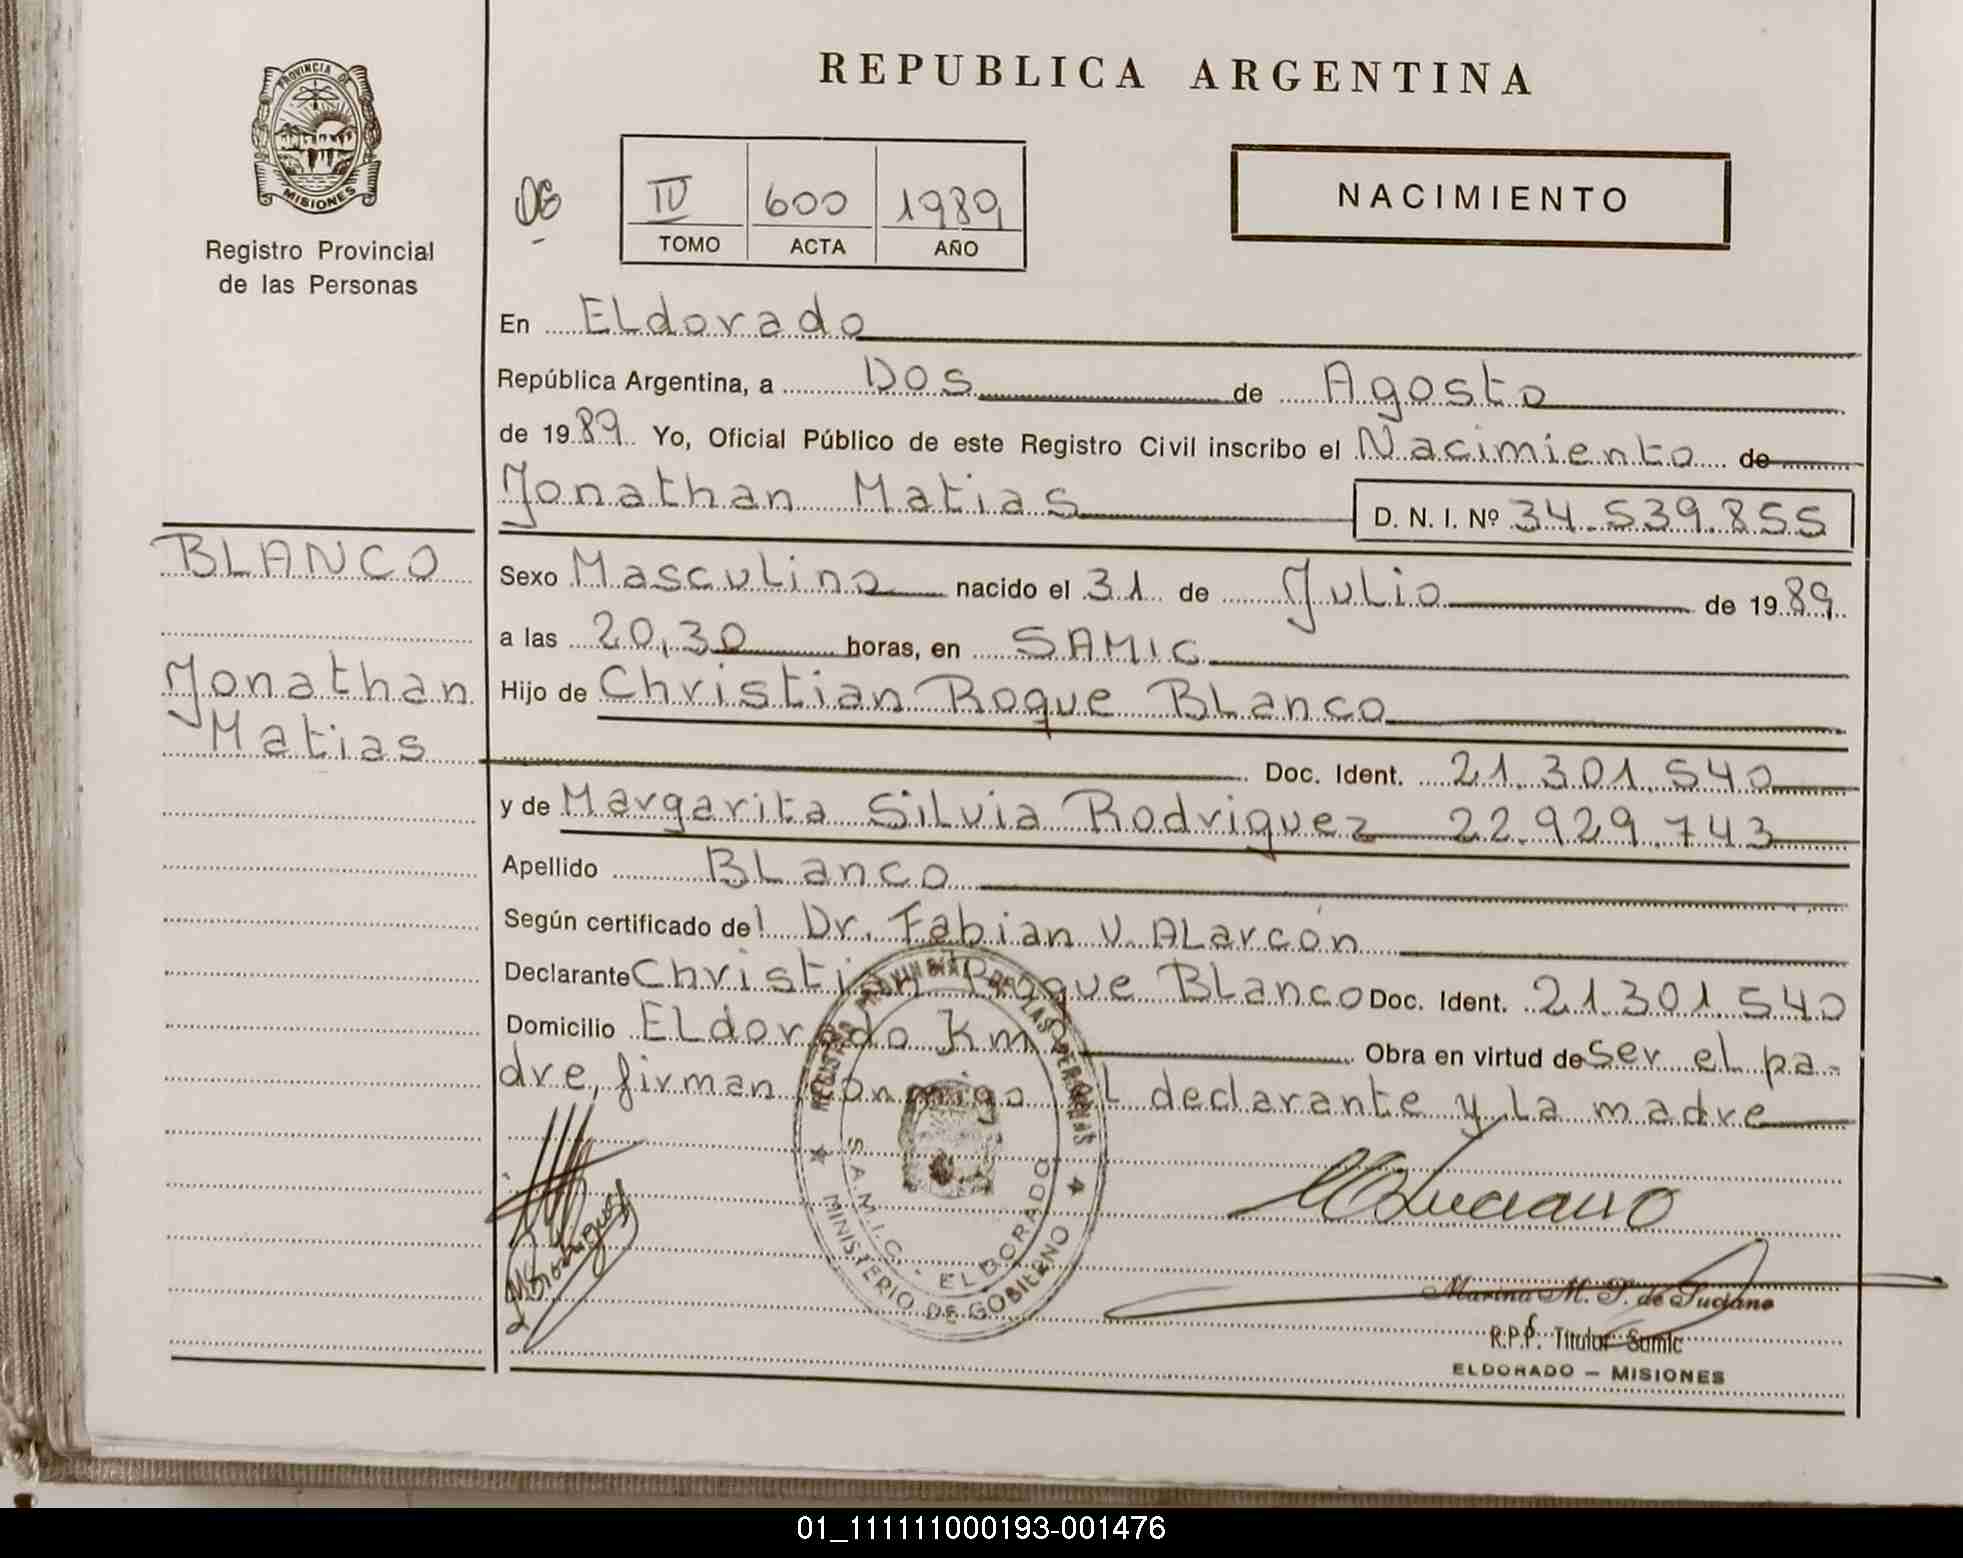 REPUBLICA ARGENTINA
PROVINCIA DE
MISIONES
Registro Provincial
de las Personas
IV 600 1989
TOMO ACTA AÑO
NACIMIENTO
En Eldorado
República Argentina, a Dos de Agosto
de 1989 Yo, Oficial Público de este Registro Civil inscribo el Nacimiento de
Jonathan Matias D. N. I. Nº 34.539.855
BLANCO
Jonathan
Matias
Sexo Masculino nacido el 31 de Julio de 1989
a las 20,30 horas, en SAMIC
Hijo de Christian Roque Blanco
Doc. Ident. 21.301.540
y de Margarita Silvia Rodriguez 22.929.743
Apellido Blanco
Según certificado del Dr. Fabian V. Alarcón
Declarante Christian Roque Blanco Doc. Ident. 21.301.540
Domicilio Eldorado Km Obra en virtud de ser el pa-
dre, firman conmigo el declarante y la madre
REGISTRO PROVINCIAL DE LAS PERSONAS
S.A.M.I.C. - ELDORADO
MINISTERIO DE GOBIERNO
MRodriguez
Luciano
Marina M. P. de Luciano
R.P.P. Titular Samic
ELDORADO — MISIONES
01_111111000193-001476